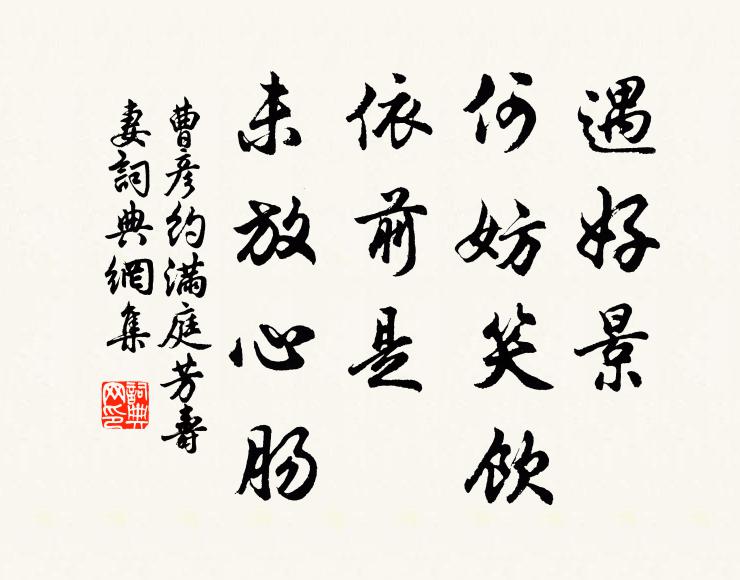 遇好景
何妨笑飲
依前是
未放心腸
曹彥約滿庭芳壽
妻詞典網集
詞典網印